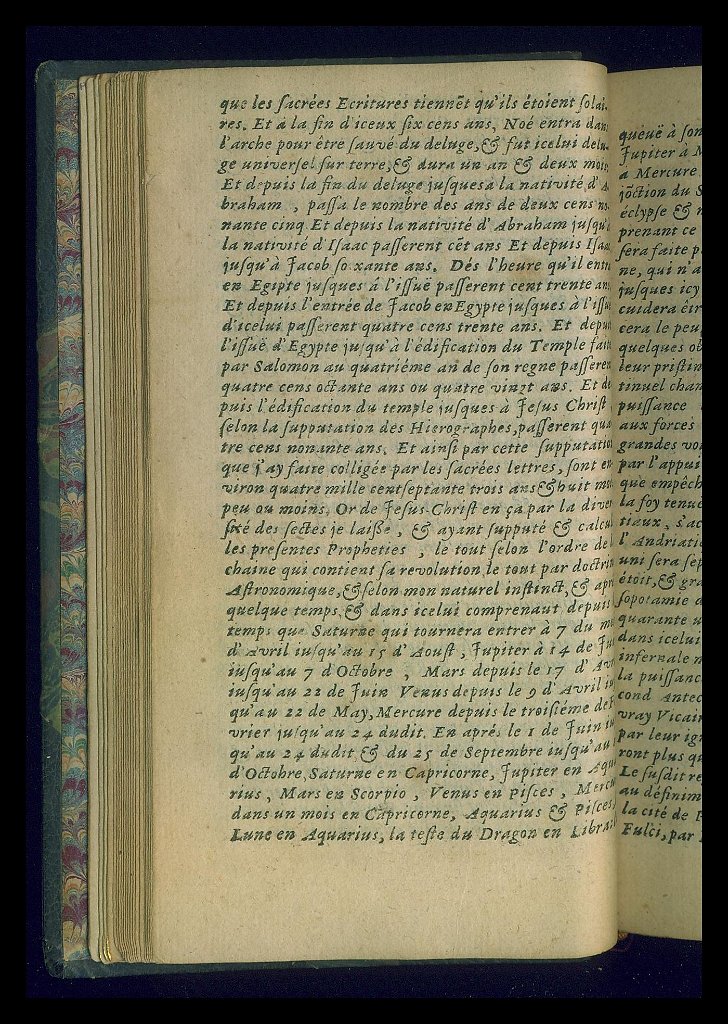 que les ſacrées Ecritures tiennẽt qu'ils étoient ſolai-
res. Et à la fin d'iceux ſix cens ans, Noé entra dans
l'arche pour être ſauvé du deluge, & fut icelui delu-
ge univerſel ſur terre, & dura un an & deux mois
Et depuis la fin du deluge juſques à la nativité d'A-
braham , paſſa le nombre des ans de deux cens no-
nante cinq Et depuis la nativité d'Abraham juſqu'à
la nativité d'Iſaac paſſerent cẽt ans Et depuis Iſaac
juſqu'à Jacob ſoixante ans. Dés l'heure qu'il entra
en Egipte juſques á l'iſſuë paſſerent cent trente ans
Et depuis l'entrée de Jacob en Egypte juſques à l'iſſuë
d'icelui paſſerent quatre cens trente ans. Et depuis
l'iſſuë d'Egypte juſqu'à l'édification du Temple faite
par Salomon au quatriéme an de ſon regne paſſerent
quatre cens octante ans ou quatre vingt ans. Et de-
puis l'édification du temple juſques à Jesus Chriſt
ſelon la ſupputation des Hierographes, paſſerent qua-
tre cens nonante ans. Et ainſi par cette ſupputation
que j'ay faite colligée par les ſacrées lettres, ſont en-
viron quatre mille cent ſeptante trois ans & huit mois
peu ou moins. Or de Jeſus-Chriſt en ça par la diver-
ſité des ſectes je laiße , & ayant ſupputé & calculé
les preſentes Propheties , le tout ſelon l'ordre de la
chaine qui contient ſa revolution le tout par doctrine
Aſtronomique, & ſelon mon naturel inſtinct, & aprés
quelque temps & dans icelui comprenant depuis le
temps que Saturne qui tournera entrer à 7 du mois
d'Avril iuſqu'au 15 d'Aouſt, Jupiter à 14 de Juin
iuſqu'au 7 d'Octobre , Mars depuis le 17 d'Avril
iuſqu'au 22 de Juin Venus depuis le 9 d'Avril iuſ-
qu'au 22 de May, Mercure depuis le troiſiéme de Fe-
vrier juſqu'au 24 dudit. En aprés le 1 de Juin iuſ-
qu'au 24 dudit & du 25 de Septembre iuſqu'au
d'Octobre, Saturne en Capricorne, Jupiter en Aqua-
rius , Mars en Scorpio , Venus en Piſces , Mercure
dans un mois en Capricorne, Aquarius & Piſces,
Lune en Aquarius, la teſte du Dragon en Libra:
queuë à ſon
Jupiter à M
a Mercure
jõction du S
éclypſe & n
prenant ce
ſera faite p
ne, qui n'a
juſques icy
cuidera êtr
cera le peu
quelques ob
leur priſtin
tinuel chan
puiſſance
aux forces
grandes voi
par l'appui
que empêch
la foy tenuë
tiaux, s'ac
l'Andriatic
uni ſera ſep
étoit, & gra
ſopotamie a
quarante u
dans icelui
infernale m
la puiſſanc
cond Antec
vray Vicair
par leur ign
ront plus q
Le ſuſdit re
au définim
la cité de P
Fulci, par